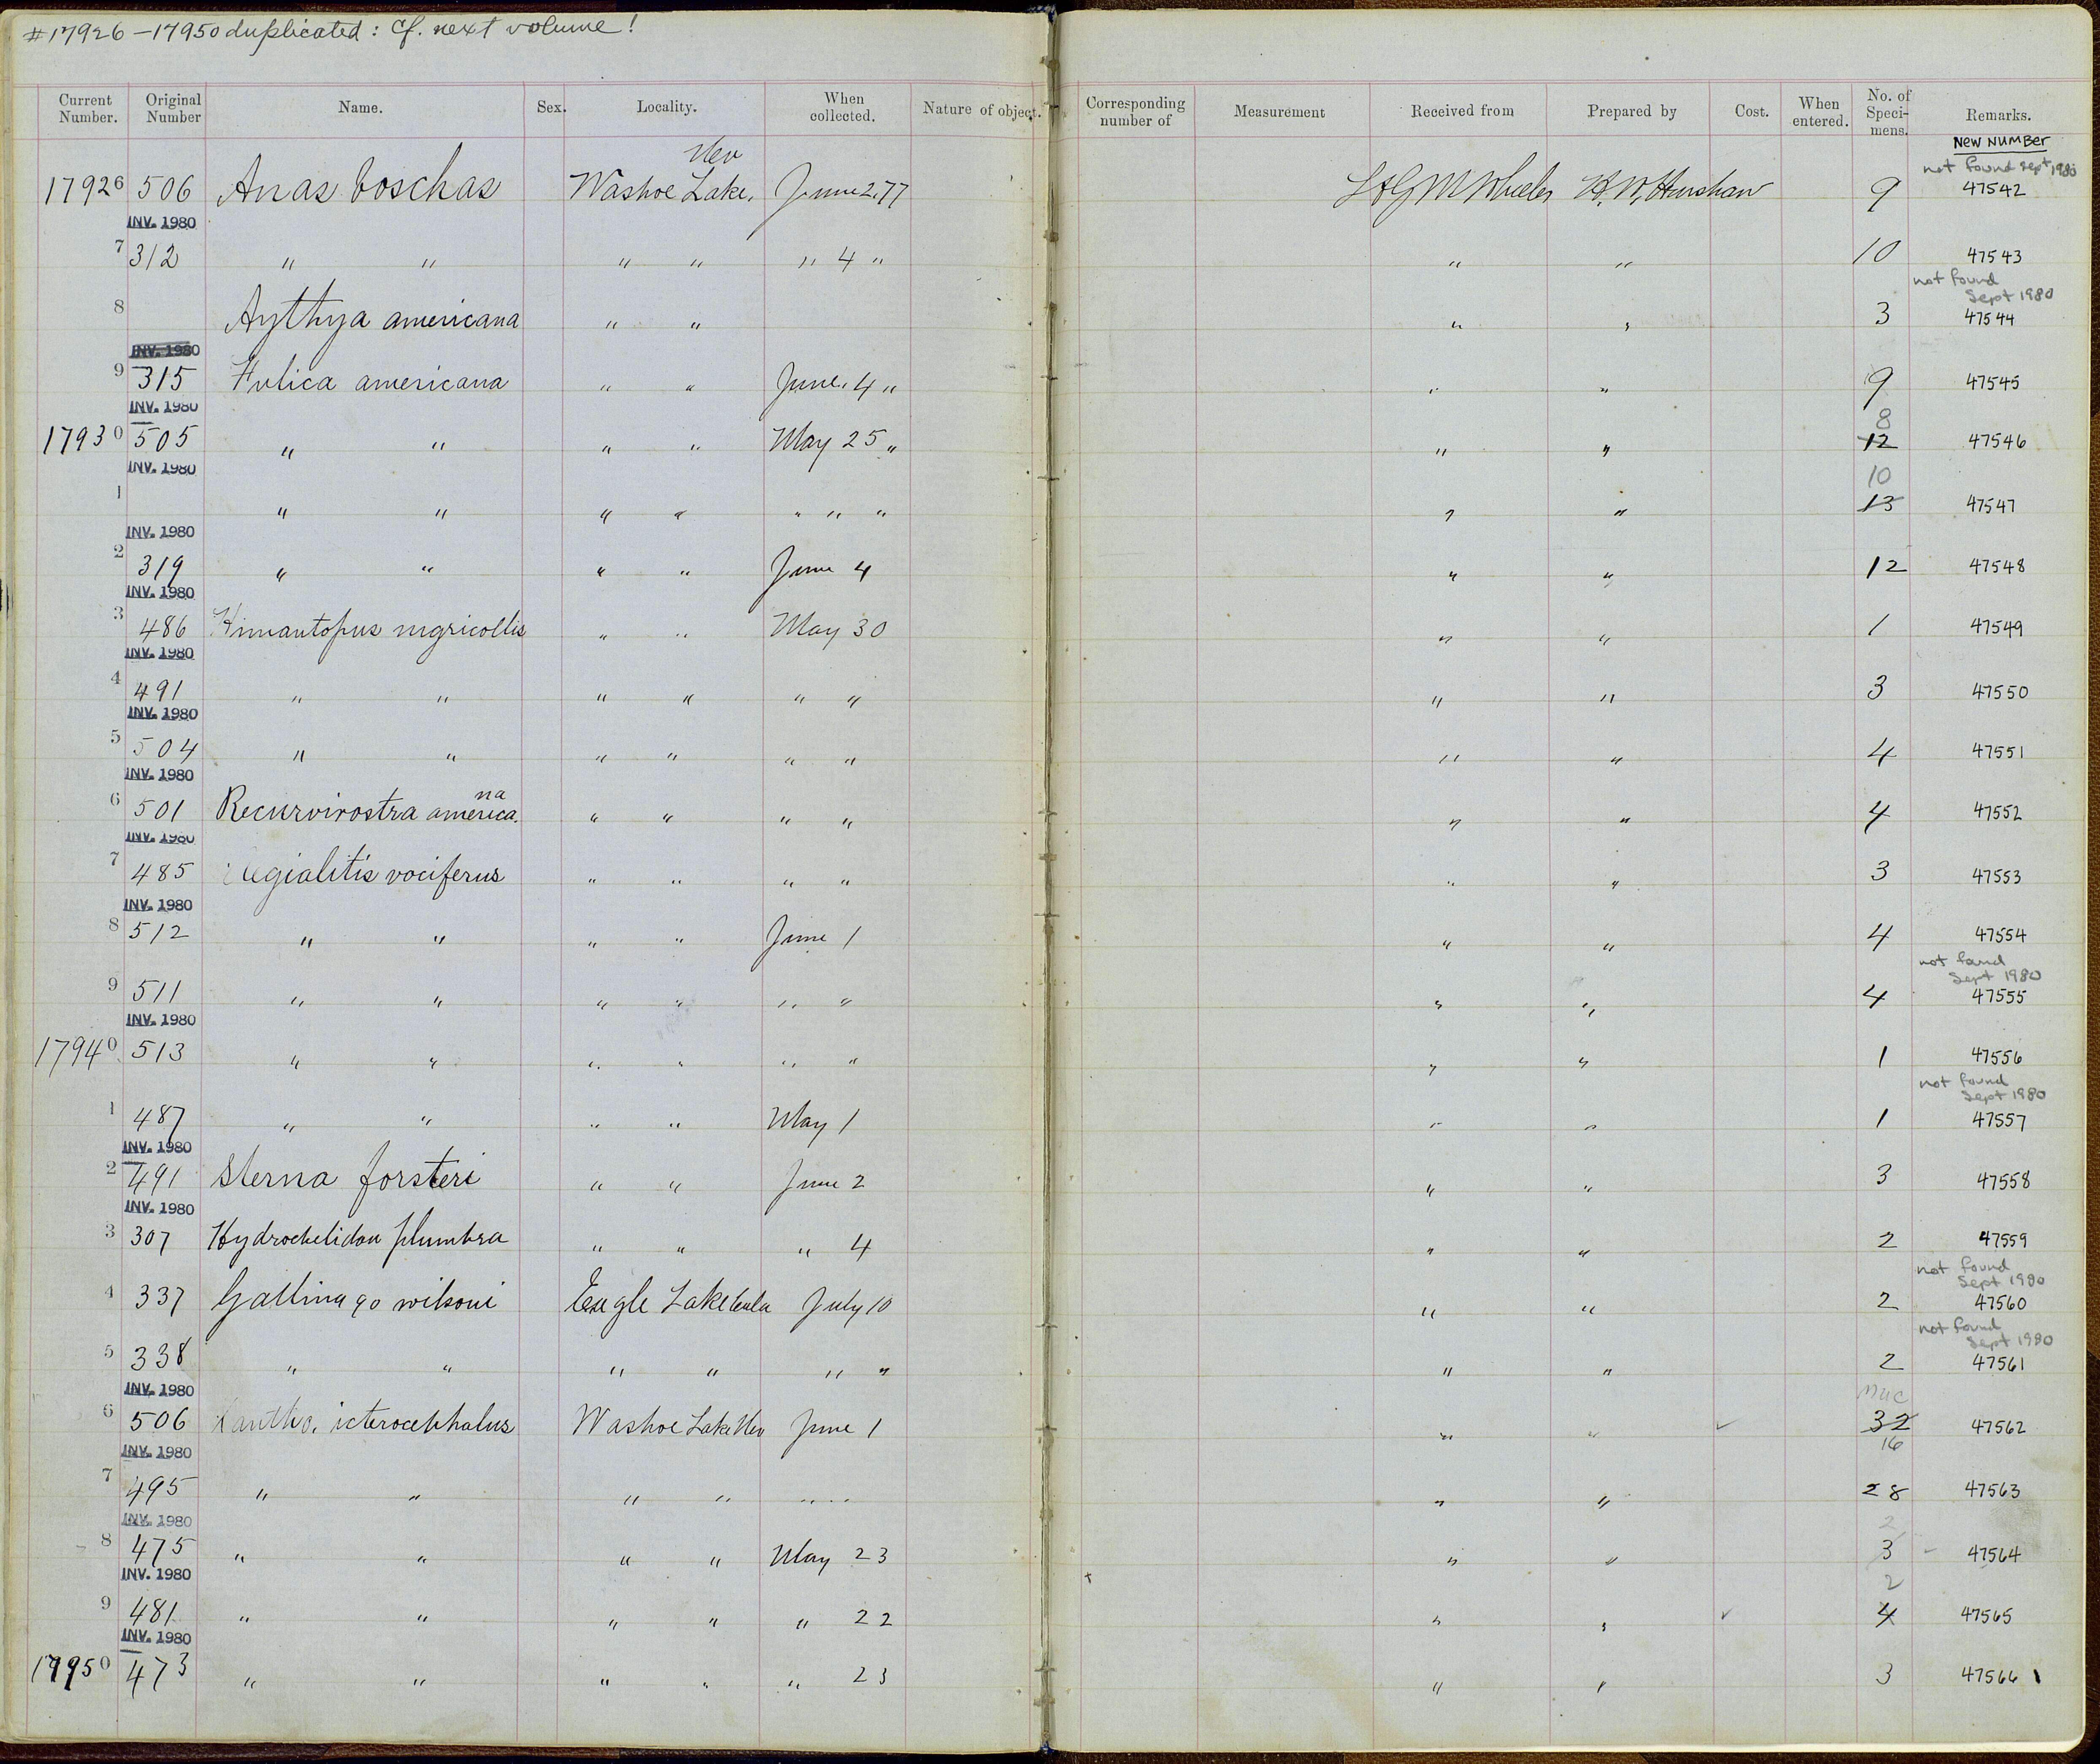 #17926-17950 duplicated: Cf. next volume!
Current Number. Original Number Name. Sex. Locality. When collected. Nature of object. Corresponding number of Measurement Received from Prepared by Cost. When entered. No. of Specimens. Remarks.
NEW NUMBER
not found Sept 1980
17926 506 Anas boschas Washoe Lake, Nev June 2, 77 Wheeler H. W. Henshaw 9 47542
INV. 1980
7 312 " " " " " 4 " " " 10 47543
not found Sept 1980
8 Aythya americana " " " " 3 47544
INV. 1980
9 315 Fulica americana " " June, 4 " " " 9 47545
INV. 1980
8
17930 505 " " " " May 25 " " " 12 47546
INV. 1980
10
1 " " " " " " " " " 13 47547
INV. 1980
2 319 " " " " June 4 " " 12 47548
INV. 1980
3 486 Himantopus nigricollis " " May 30 " " 1 47549
INV. 1980
4 491 " " " " " " " " 3 47550
INV. 1980
5 504 " " " " " " " " 4 47551
INV. 1980
6 501 Recurvirostra americana " " " " " " 4 47552
INV. 1980
7 485 Aegialitis vociferus " " " " " " 3 47553
INV. 1980
8 512 " " " " June 1 " " 4 47554
not found Sept 1980
9 511 " " " " " " " " 4 47555
INV. 1980
17940 513 " " " " " " " " 1 47556
not found Sept 1980
1 487 " " " " May 1 " " 1 47557
INV. 1980
2 491 Sterna forsteri " " June 2 " " 3 47558
INV. 1980
3 307 Hydrochelidon plumbra " " " 4 " " 2 47559
not found Sept 1980
4 337 Gallinago wilsoni Eagle Lake Cala July 10 " " 2 47560
not found Sept 1980
5 338 " " " " " " " " 2 47561
INV. 1980
6 506 Xantho. icterocephalus Washoe Lake Nev June 1 " " ✓ 32 47562
16
INV. 1980
7 495 " " " " " " " " 28 47563
INV. 1980
2
8 475 " " " " May 23 " " 3 - 47564
INV. 1980
2
9 481 " " " " " 22 " " ✓ 4 47565
INV. 1980
17950 473 " " " " " 23 " " 3 47566